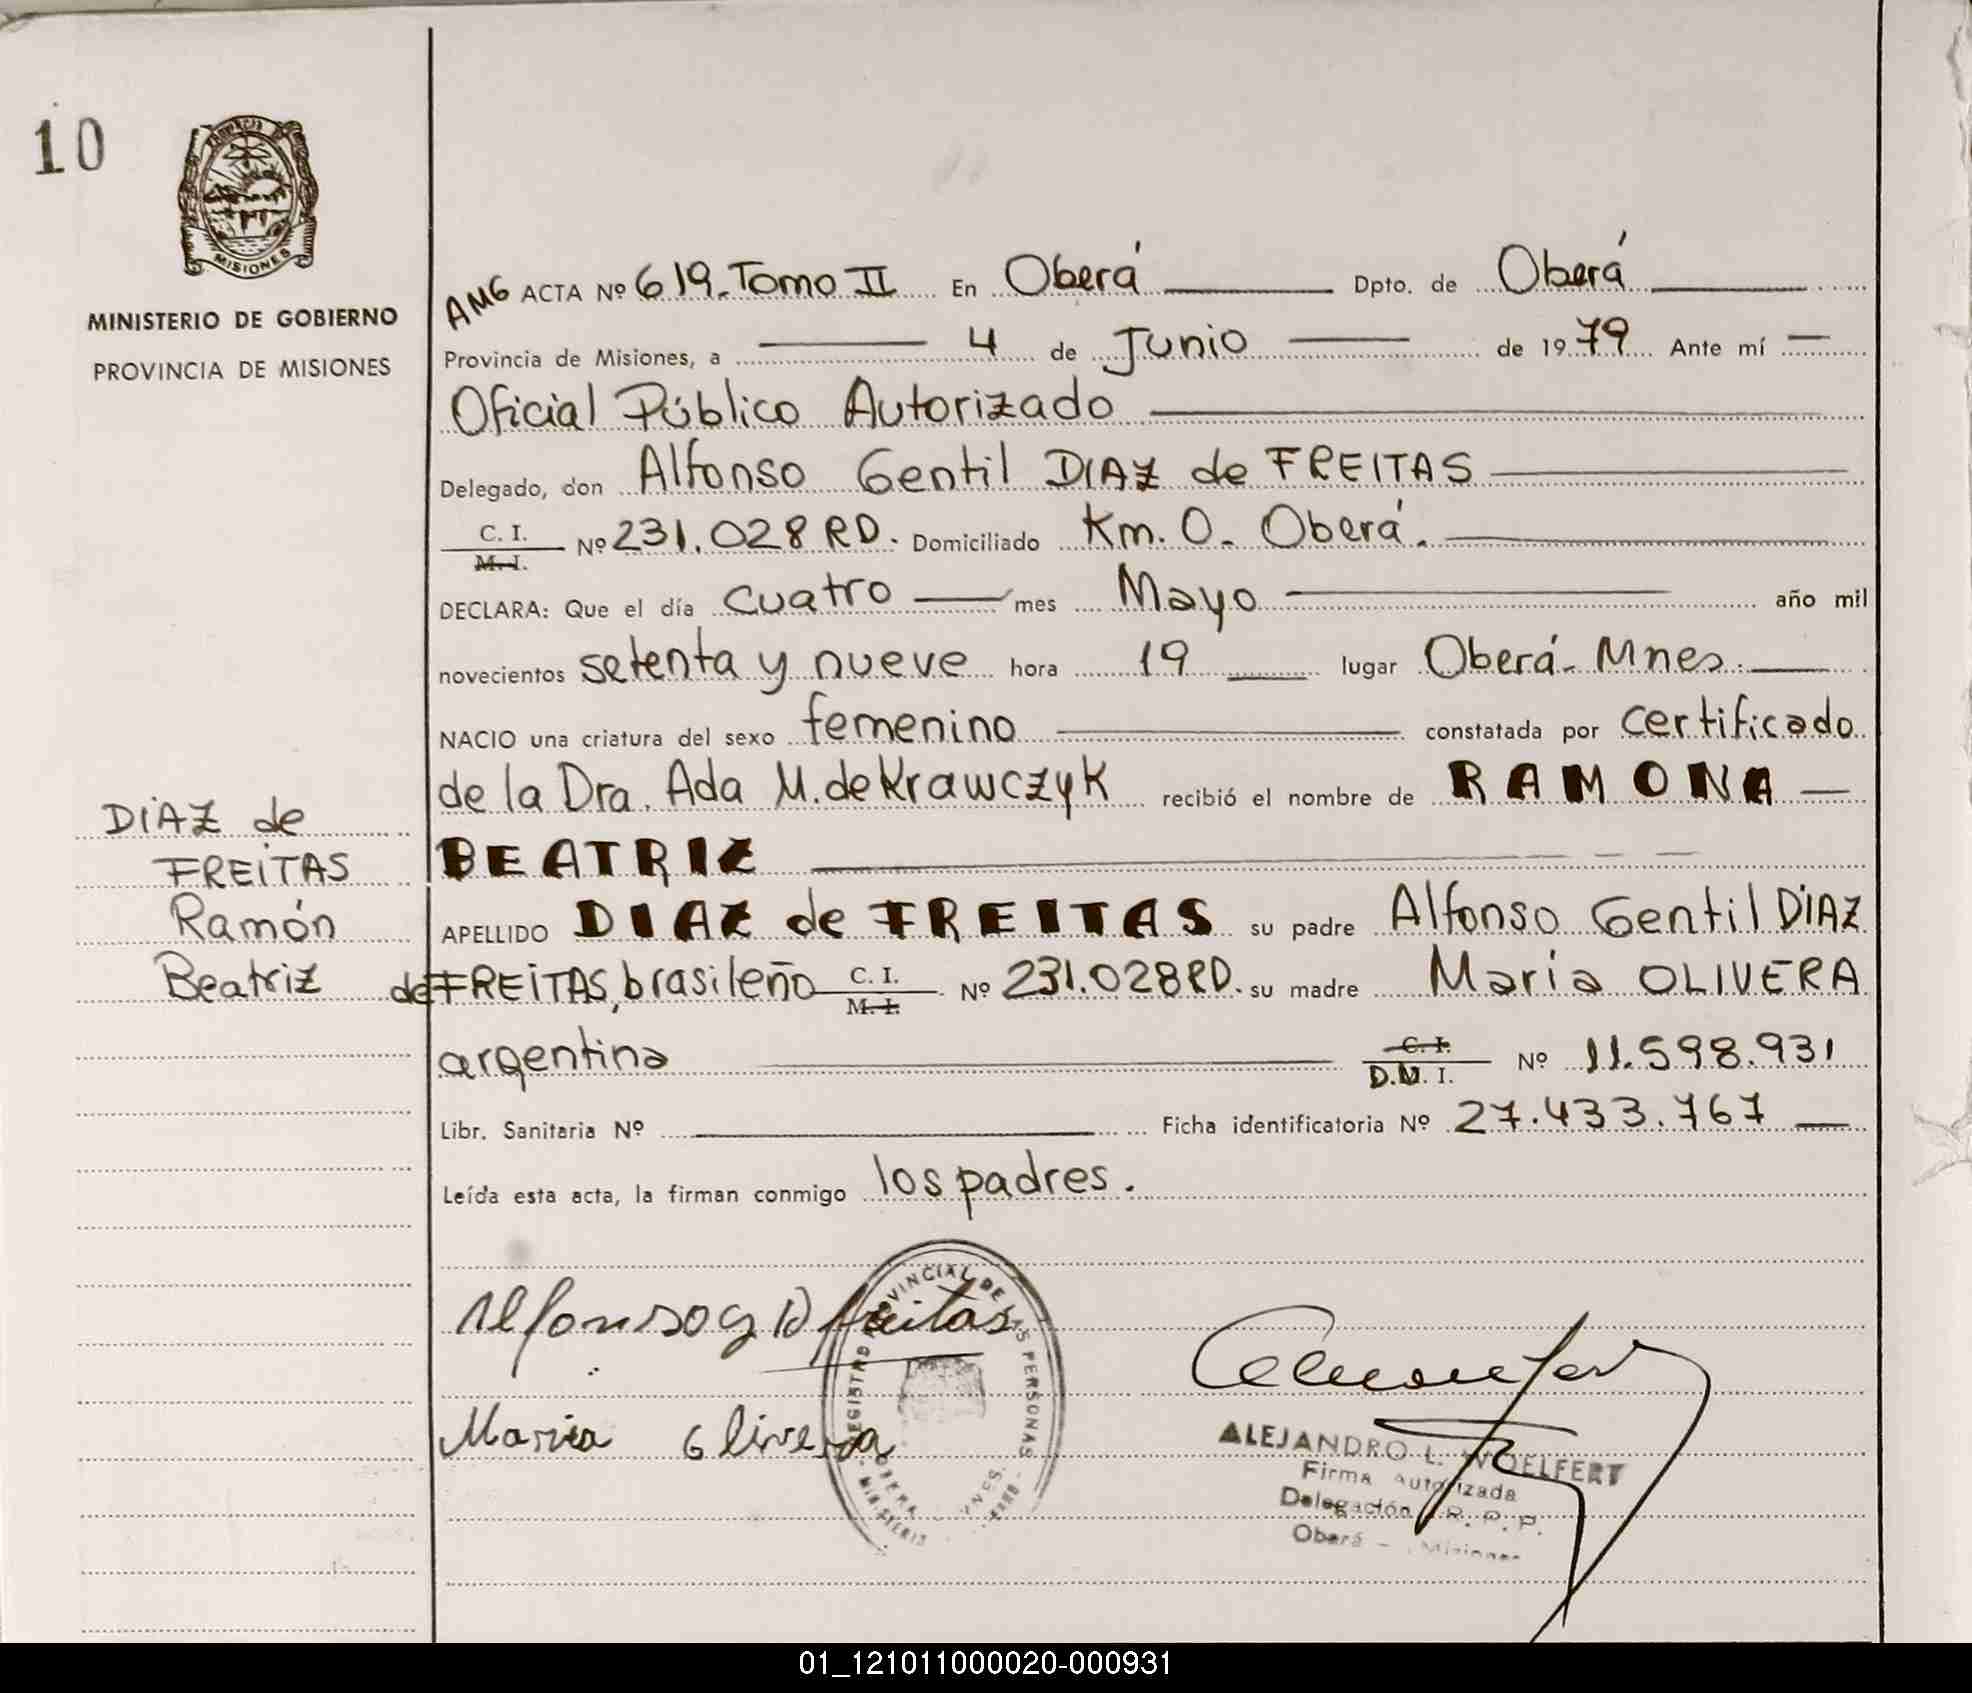 10
PROVINCIA
MISIONES
MINISTERIO DE GOBIERNO
PROVINCIA DE MISIONES
DIAZ de
FREITAS
Ramón
Beatriz
AMG ACTA Nº 619. Tomo II En Oberá Dpto. de Oberá
Provincia de Misiones, a 4 de Junio de 1979 Ante mí
Oficial Público Autorizado
Delegado, don Alfonso Gentil DIAZ de FREITAS
C. I.
M. I. Nº 231.028 RD. Domiciliado Km. 0. Oberá.
DECLARA: Que el día cuatro mes Mayo año mil
novecientos setenta y nueve hora 19 lugar Oberá - Mnes.
NACIO una criatura del sexo femenino constatada por certificado
de la Dra. Ada M. de Krawczyk recibió el nombre de RAMONA
BEATRIZ
APELLIDO DIAZ de FREITAS su padre Alfonso Gentil DIAZ
de FREITAS, brasileño C. I. M. I. Nº 231.028 RD. su madre Maria OLIVERA
argentina C. I. D.N. I. Nº 11.598.931
Libr. Sanitaria Nº Ficha identificatoria Nº 27.433.767
Leída esta acta, la firman conmigo los padres.
Alfonso G D freitas
Maria Olivera
REGISTRO PROVINCIAL DE LAS PERSONAS
OBERA MNES.
MINISTERIO
ALEJANDRO L. WOELFERT
Firma Autorizada
Delegación R. P. P.
Oberá - Misiones
01_121011000020-000931